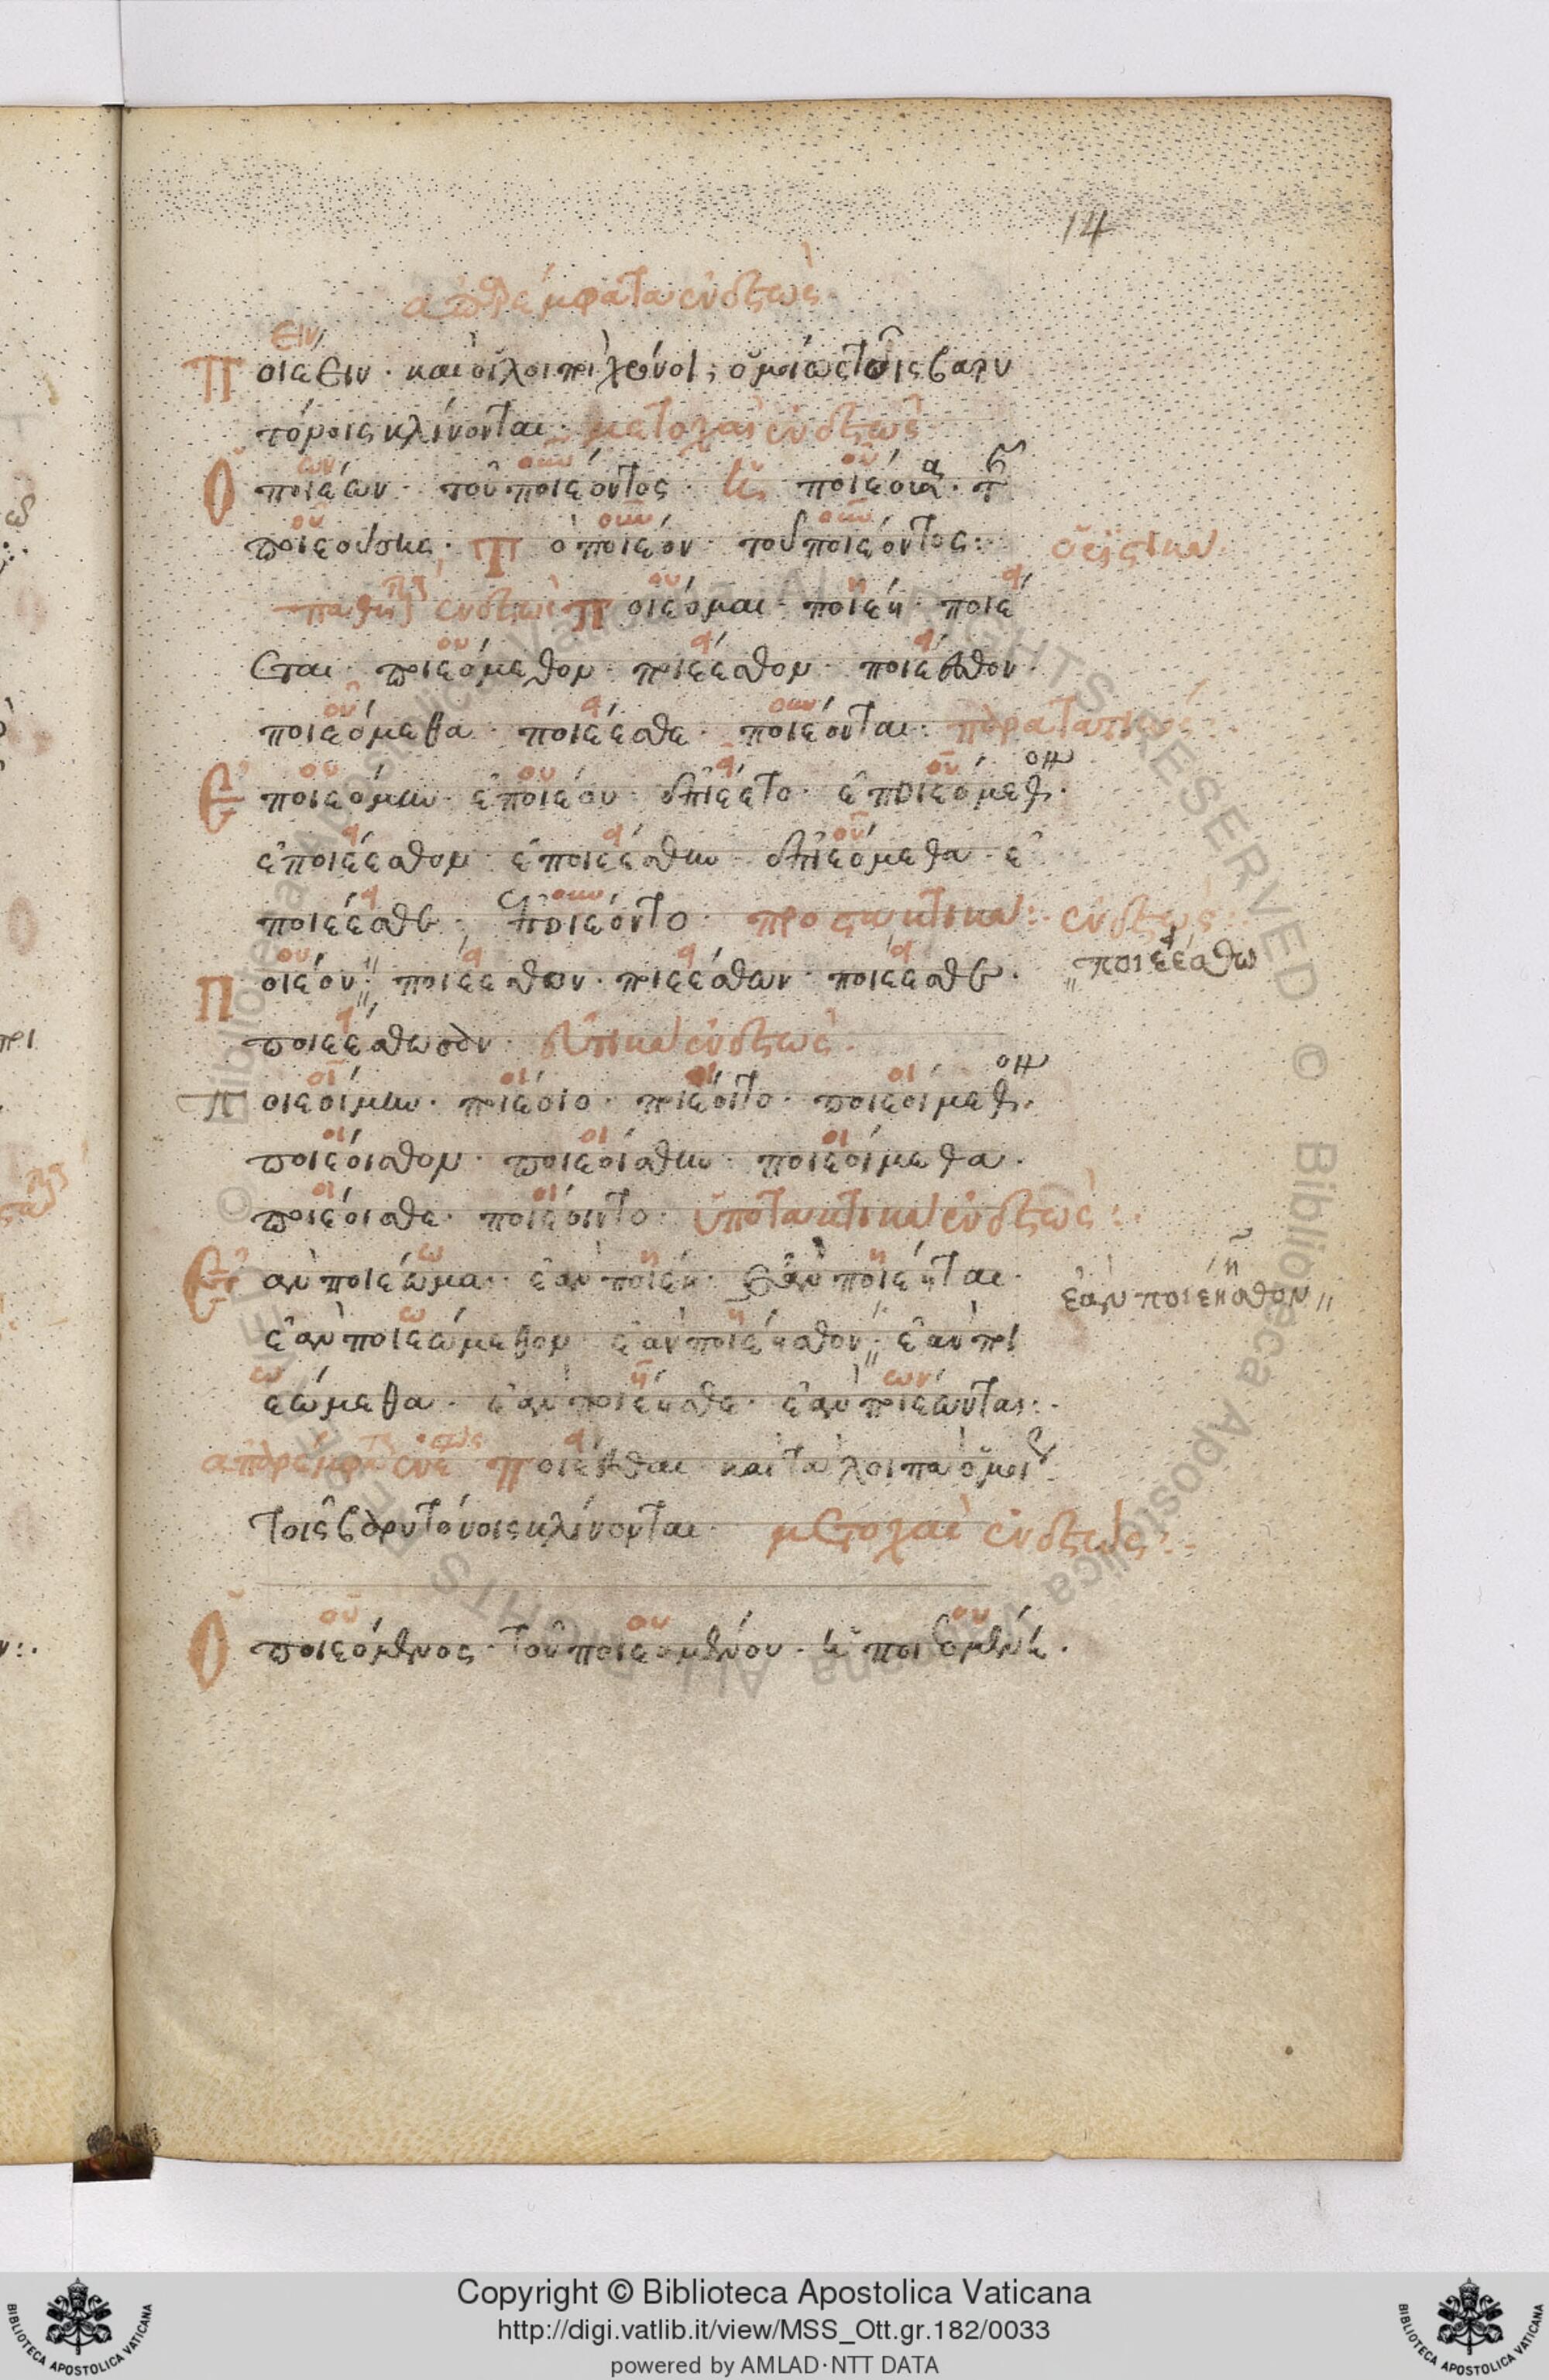 14
ἀπαρέμφατα ἐνεστῶτος
ειν
Ποιέειν · καὶ οἱ λοιποὶ χρόνοι, ὁμοίως τοῖς βαρυ
τόνοις κλίνονται · μετοχαὶ ἐνεστῶτος
ων ουν ου
Ὁ ποιέων · τοῦ ποιέοντος · ἡ ποιέουσα · τῆς
ου ουν ουν
ποιεούσης · τὸ ποιέον · τοῦ ποιέοντος :· ὁριστικὰ
ου η ει
παθητικὰ ἐνεστῶτος Ποιέομαι · ποιέη · ποιέ
ου ει ει
εται · ποιεόμεθον · ποιέεσθον · ποιέεσθον ·
ου ει ουν
ποιεόμεθα · ποιέεσθε · ποιέονται · παρατατικοῦ :·
ου ου ει ου
Ἐποιεόμην · ἐποιέου · ἐποιέετο · ἐποιεόμεθον ·
ει ει ου
ἐποιέεσθον · ἐποιεέσθην · ἐποιεόμεθα · ἐ
ει ουν
ποιέεσθε · ἐποιέοντο · προστακτικὰ :· ἐνεστῶτος :·
ου ει ει ει ει
Ποιέου · ποιέεσθον · ποιεέσθων · ποιέεσθε · ποιεέσθω
ει
ποιεέσθωσαν · εὐκτικὰ ἐνεστῶτος ·
οι οι οι οι
Ποιεοίμην · ποιέοιο · ποιέοιτο · ποιεοίμεθον ·
οι οι οι
ποιέοισθον · ποιεοίσθην · ποιεοίμεθα ·
οι οι
ποιέοισθε · ποιέοιντο · ὑποτακτικὰ ἐνεστῶτος :·
ω η η η
Ἐὰν ποιέωμαι · ἐὰν ποιέη · ἐὰν ποιέηται · ἐὰν ποιέησθον
ω η
ἐὰν ποιεώμεθον · ἐὰν ποιέησθον · ἐὰν ποι
ω η ων
εώμεθα · ἐὰν ποιέησθε · ἐὰν ποιέωνται :·
ει
ἀπαρέμφατα ἐνεστῶτος Ποιέεσθαι · καὶ τὰ λοιπὰ ὁμοίως
τοῖς βαρυτόνοις κλίνονται · μετοχαὶ ἐνεστῶτος :·
ου ου ου
Ὁ ποιεόμενος · τοῦ ποιεομένου · ἡ ποιεομένη ·
© Biblioteca Apostolica Vaticana ALL RIGHTS RESERVED
Copyright © Biblioteca Apostolica Vaticana
http://digi.vatlib.it/view/MSS_Ott.gr.182/0033
powered by AMLAD·NTT DATA
BIBLIOTECA APOSTOLICA VATICANA
BIBLIOTECA APOSTOLICA VATICANA